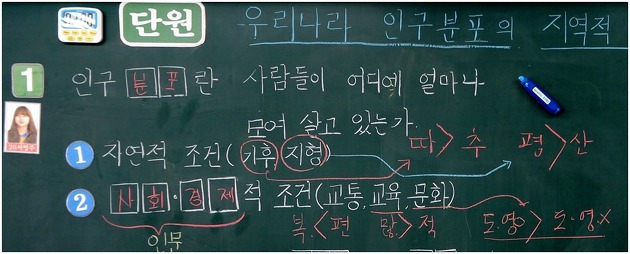 단원 우리나라 인구분포의 지역적
1 인구 분포란 사람들이 어디에 얼마나
모여 살고 있는가.
① 자연적 조건(기후, 지형) 따>추 평>산
② 사회·경제적 조건(교통, 교육, 문화) 도·영O>도·영·X
인문 복.<편 많.>적